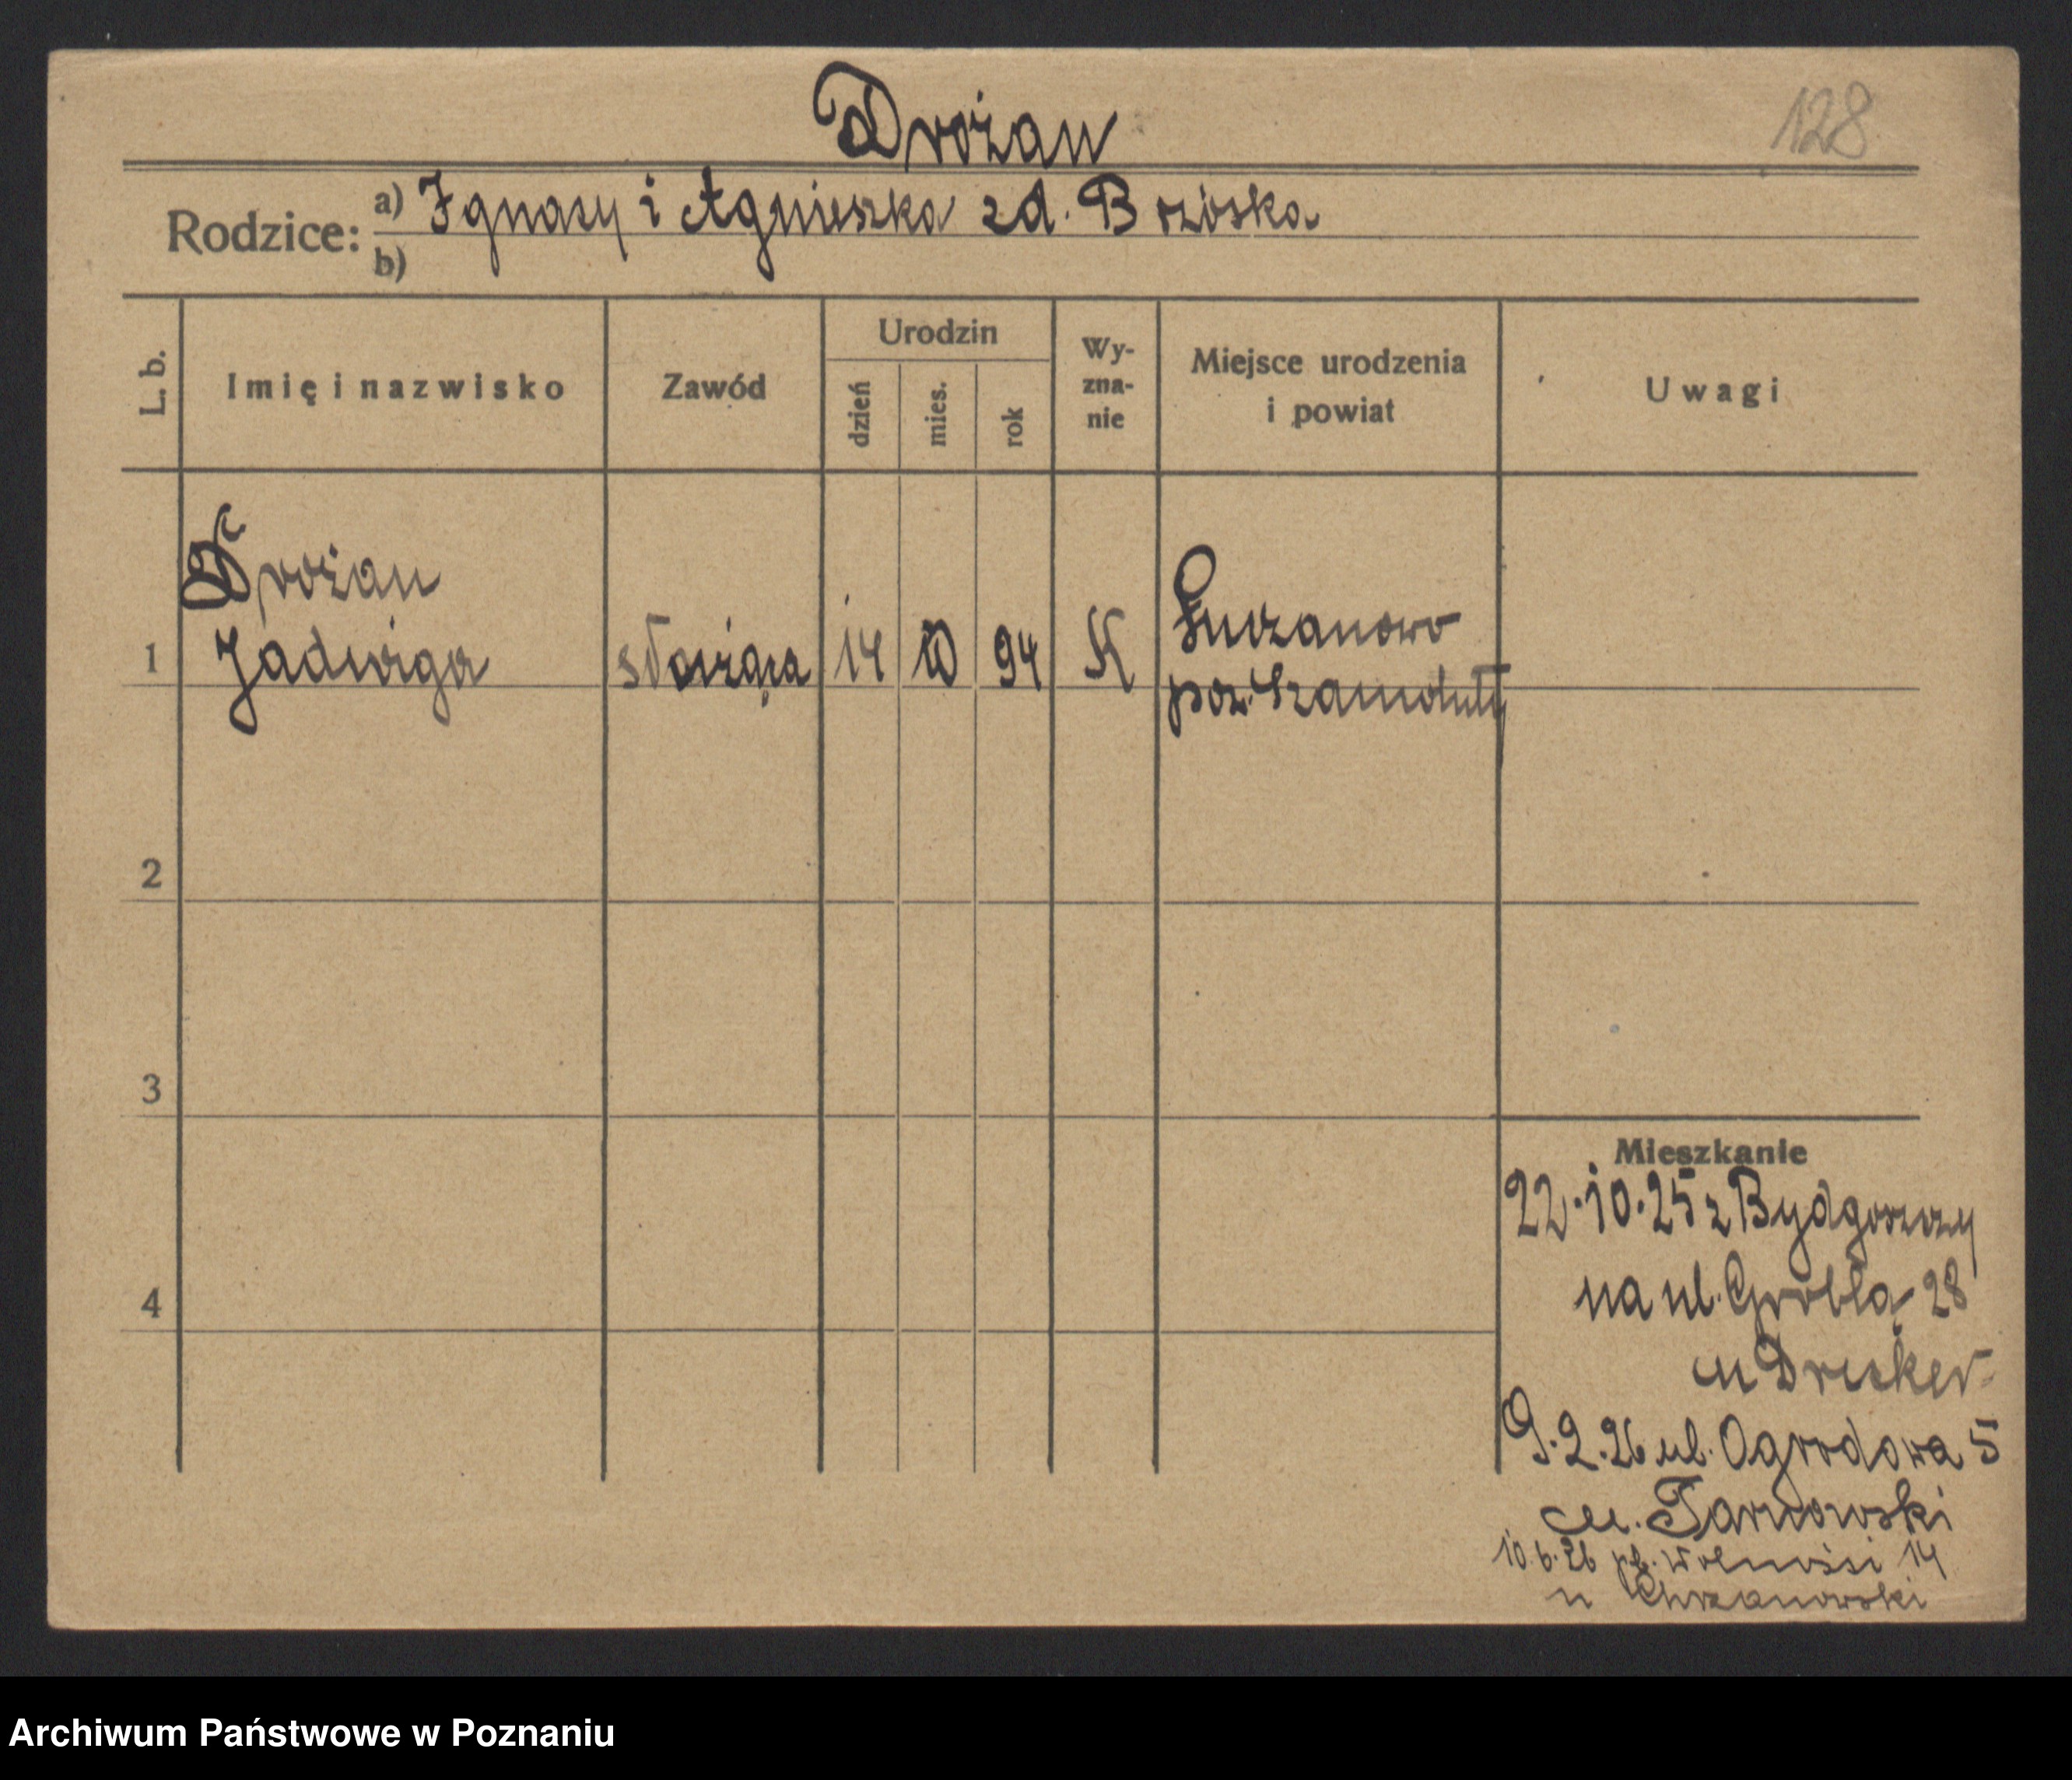 Drożan
128
Rodzice: a) Ignacy i Agnieszka zd. Brzóska
b)
L. b.
Imię i nazwisko
Zawód
Urodzin
dzień
mies.
rok
Wy-
zna-
nie
Miejsce urodzenia
i powiat
Uwagi
Drożan
1 Jadwiga
służąca
14
10
94
K
pow. Szamotuły
2
3
4
Mieszkanie
22.10.25 z Bydgoszczy
na ul. Grobla 28
u
9.2.26 ul. Ogrodowa 5
u. Tarnowski
10.6.26 pl. Wolności 14
u Chrzanowski
Archiwum Państwowe w Poznaniu